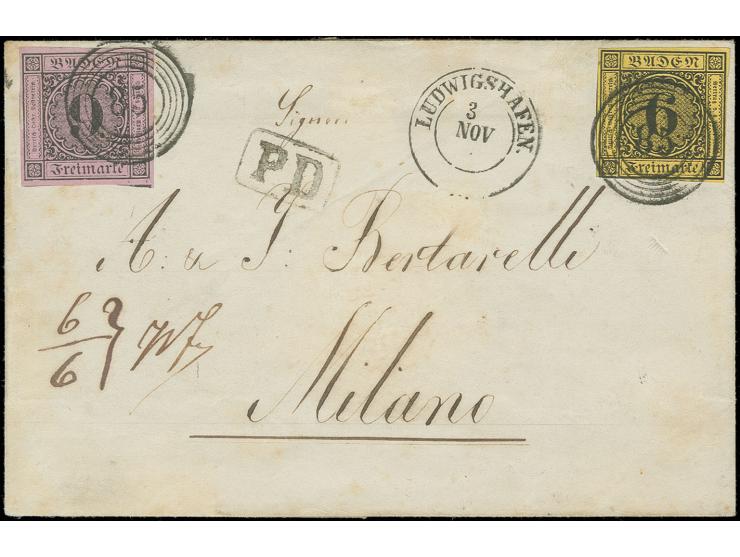 BADEN
9
Freimarke
BADEN
6
Freimarke
LUDWIGSHAFEN.
3
NOV
Signori
P.D
A. & J: Bertarelli
6
6
Milano